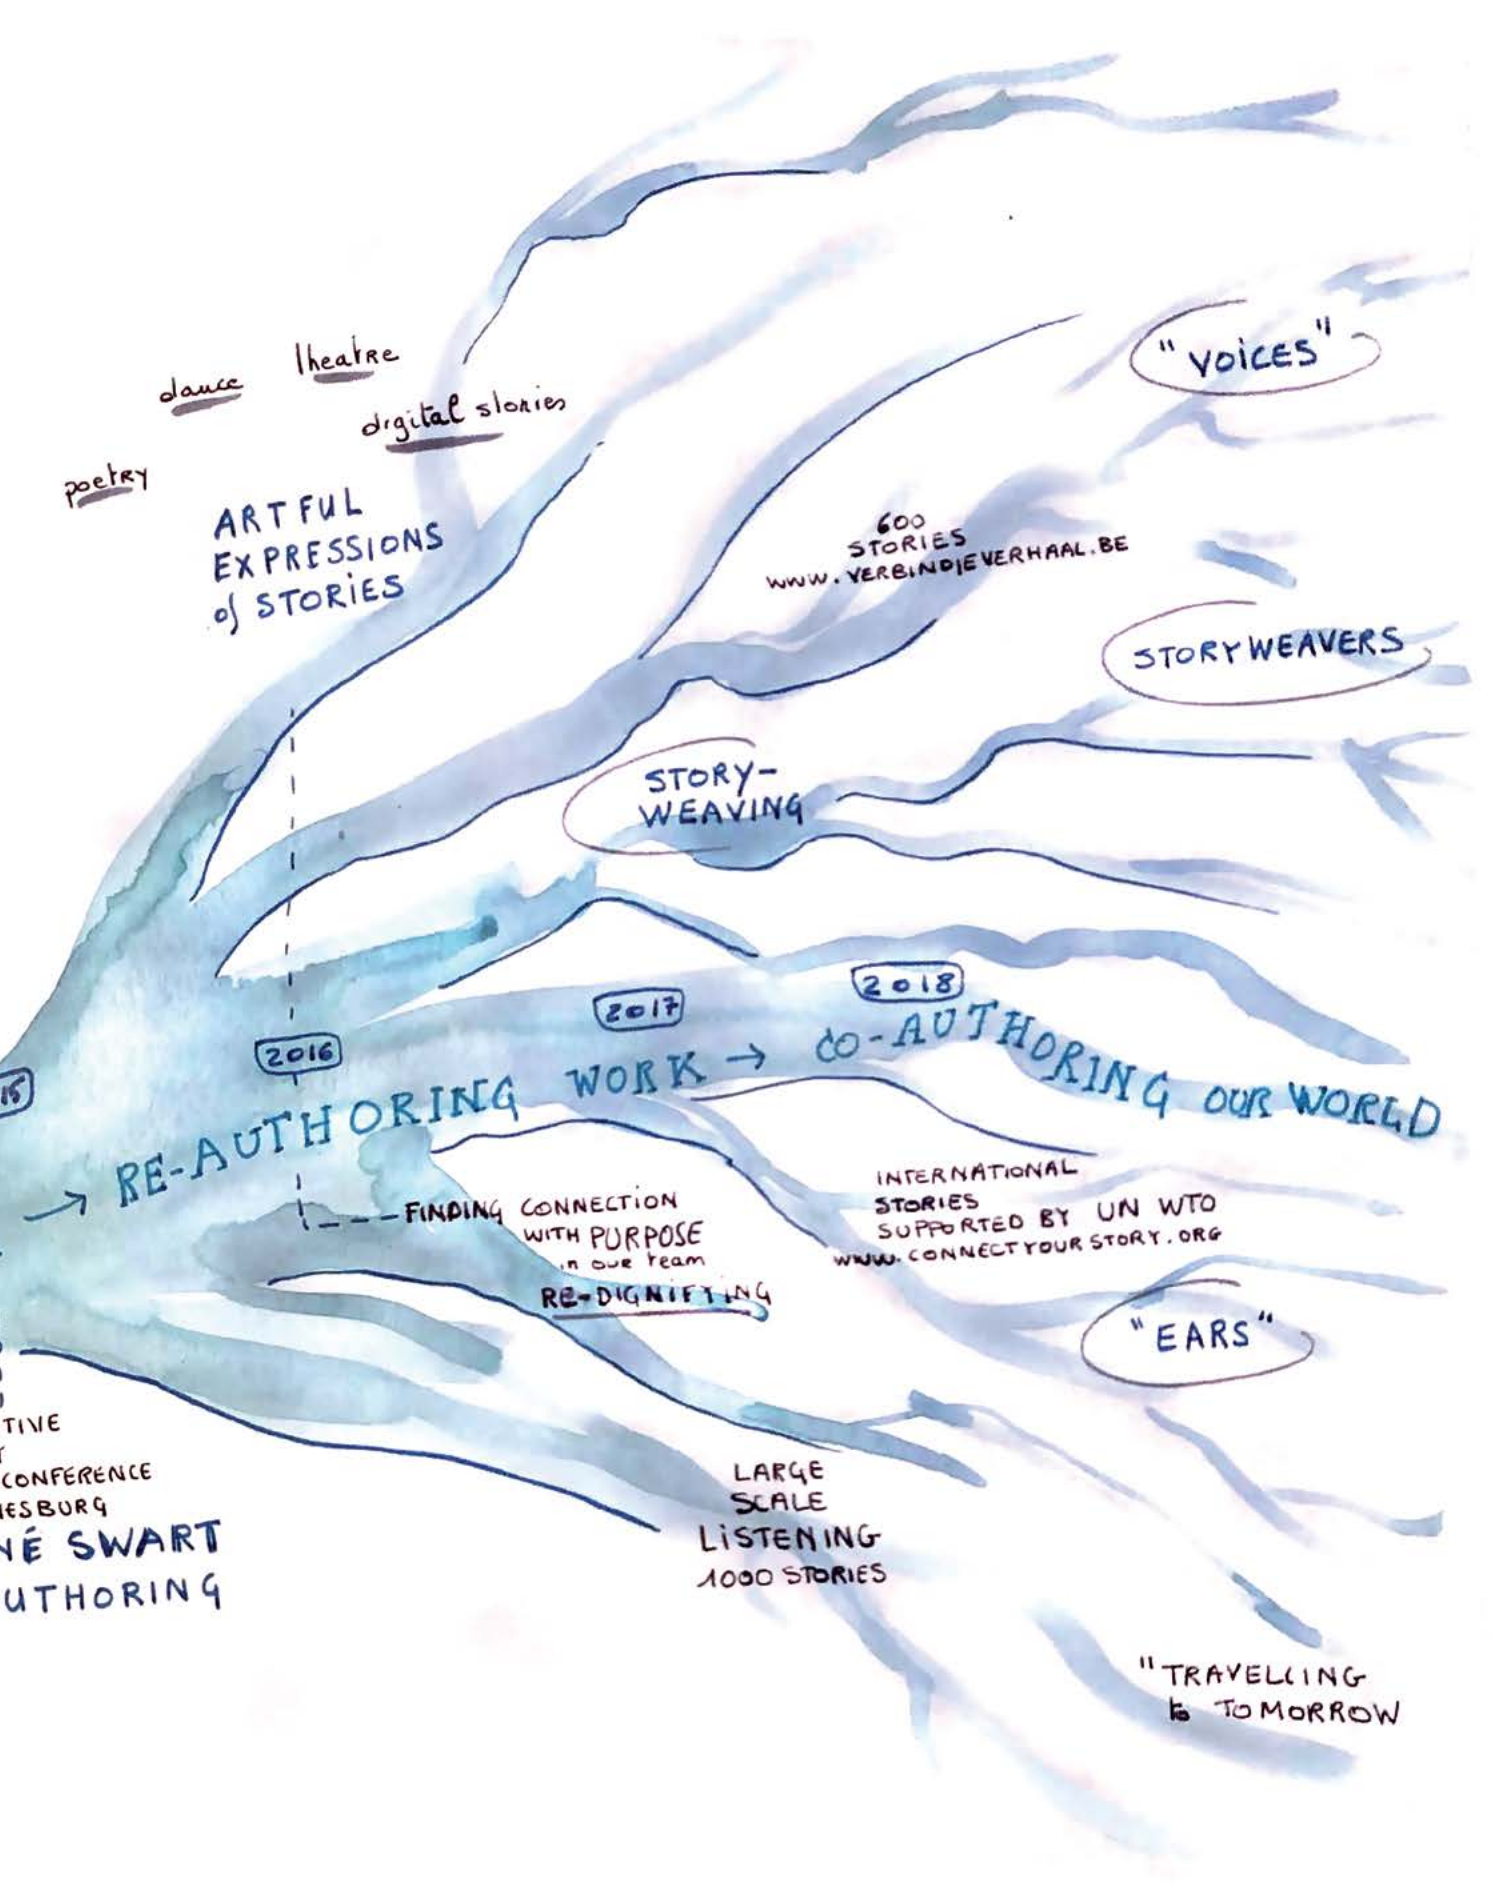 "VOICES"
theatre
dance
digital stories
poetry
ARTFUL
EXPRESSIONS
of STORIES
600
STORIES
WWW.VERBINDJEVERHAAL.BE
STORYWEAVERS
STORY-
WEAVING
2018
2017
2016
15
→ RE-AUTHORING WORK → CO-AUTHORING OUR WORLD
FINDING CONNECTION
WITH PURPOSE
in our team
RE-DIGNIFYING
INTERNATIONAL
STORIES
SUPPORTED BY UN WTO
WWW.CONNECTYOURSTORY.ORG
"EARS"
TIVE
CONFERENCE
ESBURG
NÉ SWART
UTHORING
LARGE
SCALE
LISTENING
1000 STORIES
"TRAVELLING
to TOMORROW